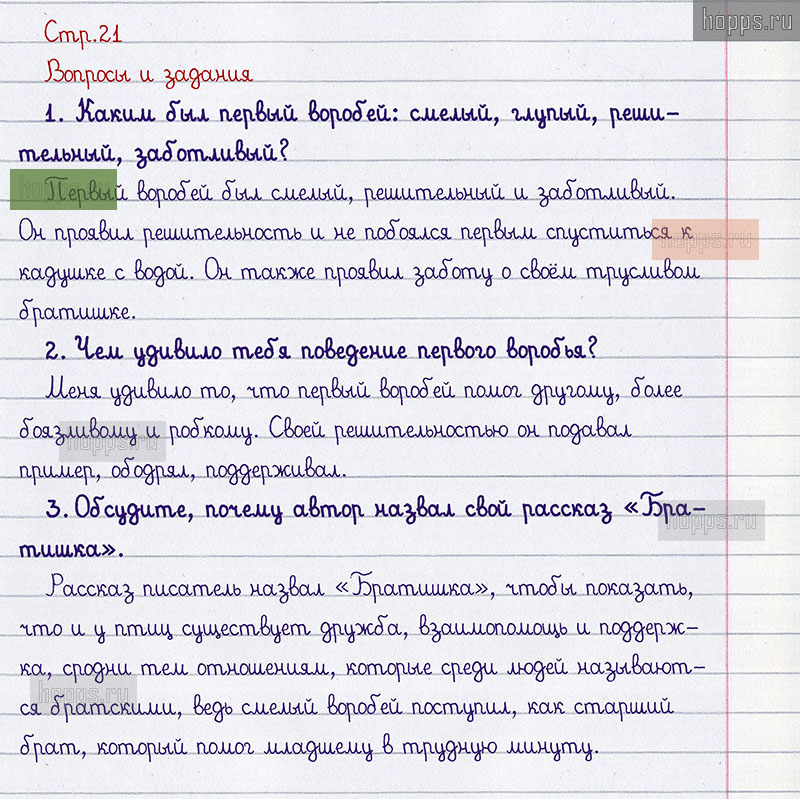 hopps.ru
Стр.21
Вопросы и задания
1. Каким был первый воробей: смелый, глупый, реши-
тельный, заботливый?
Первый воробей был смелый, решительный и заботливый.
Он проявил решительность и не побоялся первым спуститься к
hopps.ru
кадушке с водой. Он также проявил заботу о своём трусливом
братишке.
2. Чем удивило тебя поведение первого воробья?
Меня удивило то, что первый воробей помог другому, более
боязливому и робкому. Своей решительностью он подавал
hopps.ru
пример, ободрял, поддерживал.
3. Обсудите, почему автор назвал свой рассказ «Бра-
hopps.ru
тишка».
Рассказ писатель назвал «Братишка», чтобы показать,
что и у птиц существует дружба, взаимопомощь и поддерж-
ка, сродни тем отношениям, которые среди людей называют-
hopps.ru
ся братскими, ведь смелый воробей поступил, как старший
брат, который помог младшему в трудную минуту.